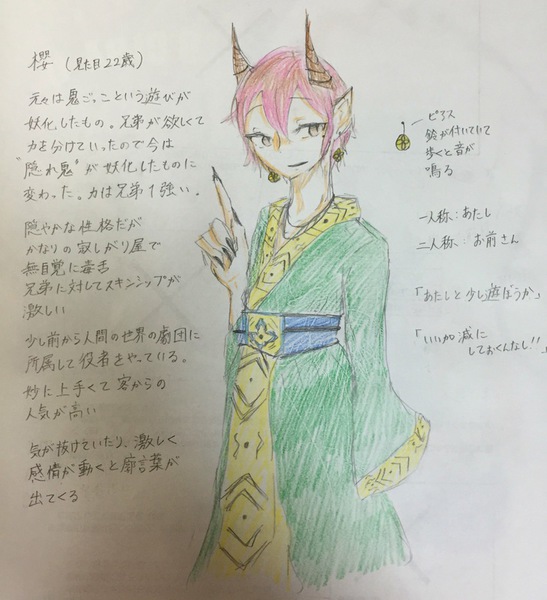 櫻 (見た目22歳)
元々は鬼ごっこという遊びが
妖化したもの。兄弟が欲しくて
力を分けていったので今は
"隠れ鬼"が妖化したものに
変わった。力は兄弟1強い。
隠やかな性格だが
かなりの寂しがり屋で
無自覚に毒舌
兄弟に対してスキンシップが
激しい
少し前から人間の世界の劇団に
所属して役者をやっている。
妙に上手くて客からの
人気が高い
気が抜けていたり、激しく
感情が動くと廓言葉が
出てくる
ピアス
鈴が付いていて
歩くと音が
鳴る
一人称:あたし
二人称:お前さん
「あたしと少し遊ぼうか」
「いい加減に
しておくんなし!!」